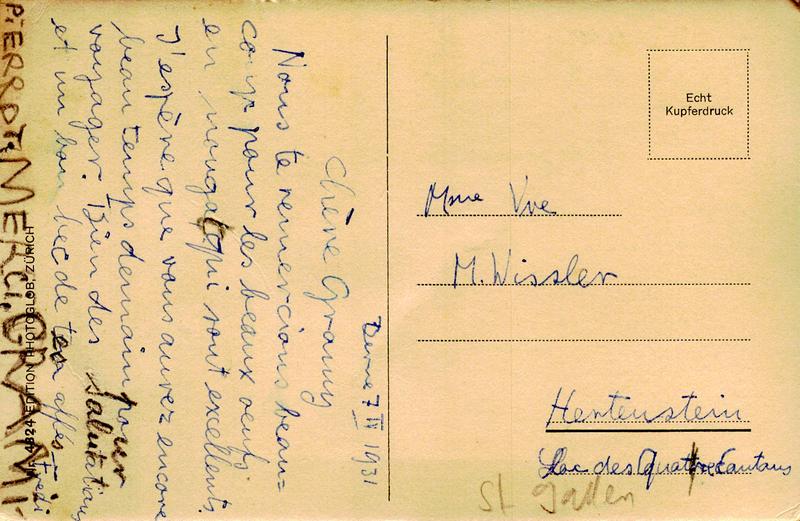 Berne 7 IV 1931
Chère Grany
Nous te remercions beau=
coup pour les beaux oeufs
en nougat qui sont excellents.
J'espère que vous aurez encore
beau temps demain pour
voyager. Bien des salutations
et un bon bec de ton aff. Fredi
PIERROT. MERCI, GRAMI
4824 EDITION PHOTOGLOB, ZÜRICH
Echt
Kupferdruck
Mme Vve
M. Wissler
Hertenstein
Lac des Quatre Cantons
St Gallen